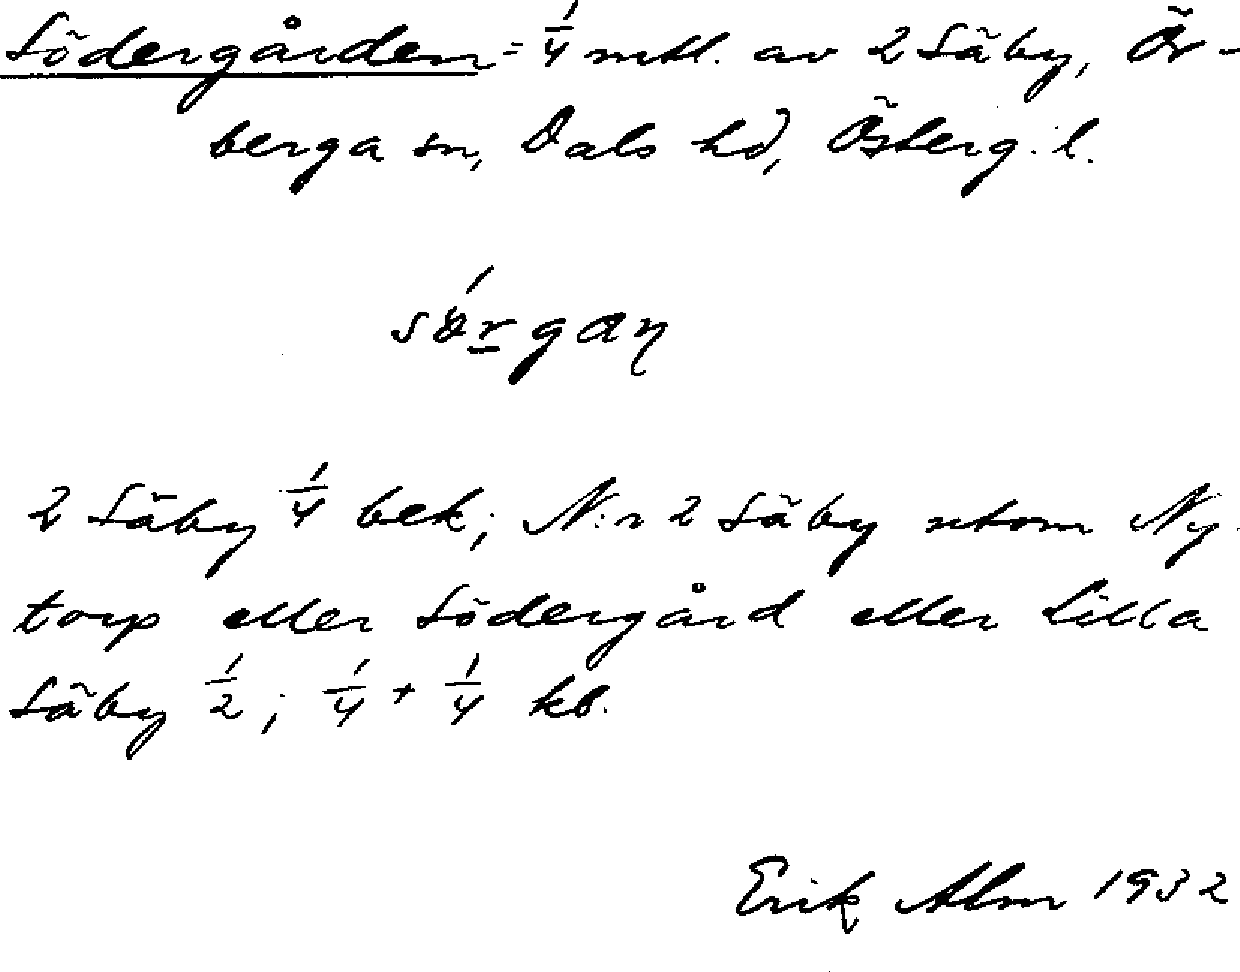 Södergården = 1/4 mtl. av 2 Säby, Ör-
berga sn, Dals hd, Österg. l.
sörgan
2 Säby 1/4 bek; N:r 2 Säby utom Ny-
torp eller Södergård eller Lilla
Säby 1/2; 1/4 + 1/4 kb.
Erik Alm 1932